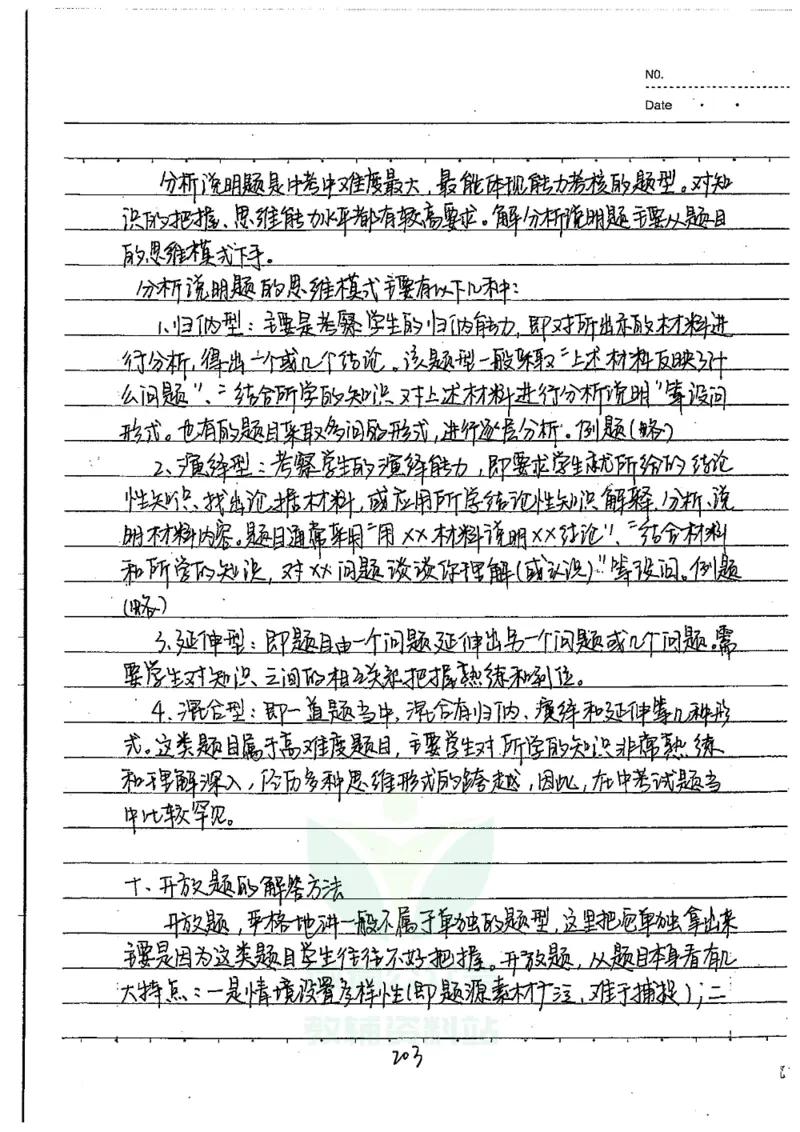 NO.
Date
分析说明题是中考中难度最大，最能体现能力考核的题型。对知
识的把握、思维能力水平都有较高要求。解分析说明题主要从题目
的思维模式下手。
分析说明题的思维模式主要有以下几种：
1、归纳型：主要是考察学生的归纳能力，即对所出示的材料进
行分析，得出一个或几个结论。该题型一般采取“上述材料反映了什
么问题”、“结合所学的知识对上述材料进行分析说明”等设问
形式。也有的题目采取多问的形式，进行逐层分析。例题（略）
2、演绎型：考察学生的演绎能力，即要求学生就所给的结论
性知识，找出论据材料，或应用所学结论性知识解释、分析、说
明材料内容。题目通常采用“用××材料说明××结论”、“结合材料
和所学的知识，对××问题谈谈你理解（或认识）”等设问。例题
（略）
3、延伸型：即题目由一个问题延伸出另一个问题或几个问题。需
要学生对知识之间的相互关系把握熟练和到位。
4、混合型：即一道题当中，混合有归纳、演绎和延伸等几种形
式。这类题目属于高难度题目，主要学生对所学的知识非常熟练
和理解深入，经历多种思维形式的跨越，因此，在中考试题当
中比较罕见。
十、开放题的解答方法
开放题，严格地讲一般不属于单独的题型，这里把它单独拿出来
主要是因为这类题目学生往往不好把握。开放题，从题目本身看有几
大特点：一是情境设置多样性（即题源素材广泛，难于捕捉）；二
教辅资料站
203